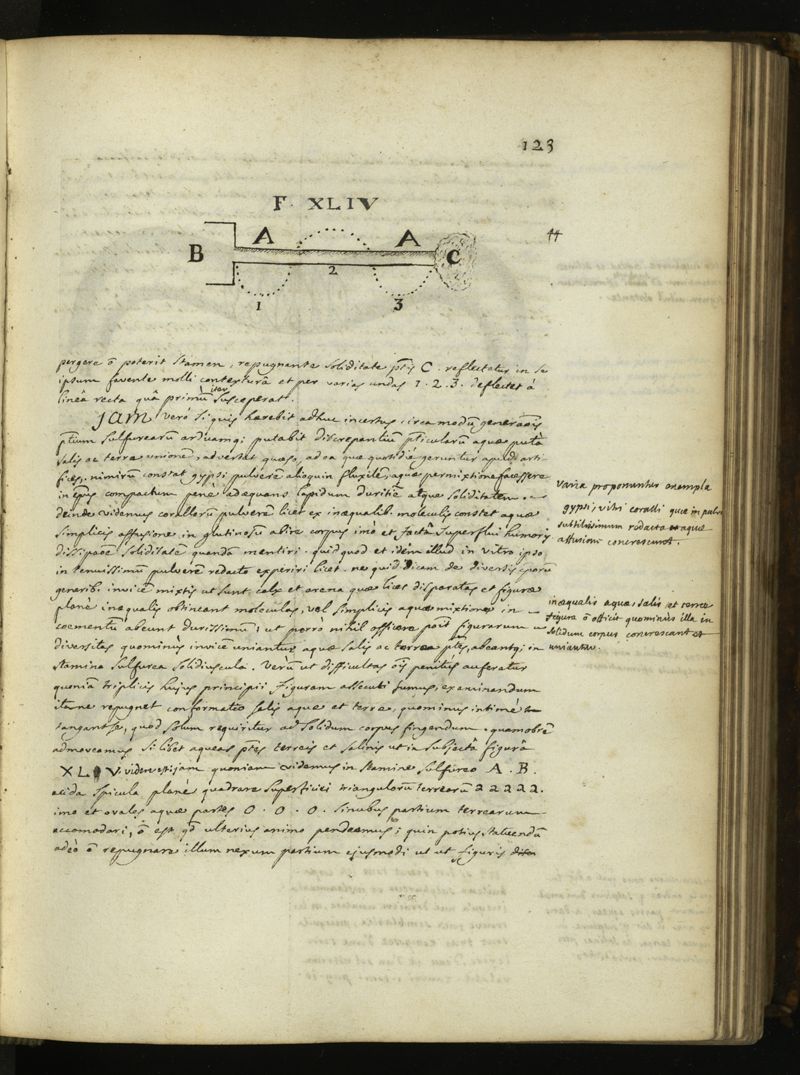 123
F. XLIV
44
A A
B C
2
1 3
pergere õ poterit stamen, repugnante soliditate ptis C. reflectatur in se
ipsum favente molli contexturâ et per varias undas 1. 2. 3. deflectet à
linea recta quâ primũ iter susceperat.
Jam verò si quis hærebit adhuc incertus circa modũ
ptium sulfurearũ arduamq; putabit discrepantiũ pticularũ aquæ putà
salis ac terræ unionem, advertat quæso, ad ea quæ quotidiè geruntur apud arti-
fices, nimirũm constat gypsi pulverẽ alioquin fluxilẽ, aquæ permixtione facessere
in compactum pene adæquans lapidum duritiẽ atque soliditatem.
deinde videmus corallorũ pulverẽ licet ex inæqualib. moleculis constet aquæ
simplicis affusione in glutinosũ abire corpus imò et factâ superflui humoris
soliditatẽ quandã mentiri. quid quod et idẽm illud in vitro ipso
in tenuissimũ pulverẽ redacto experiri licet. ne quid dicam de diversis
generib. invicẽ mixtis ut sunt calx et arena quæ licet disparatas et figuræ
planè inæqualis obtineant moleculas, vel simplicis aquæ mixtione in
cœmentũ abeunt durissimũ; ut porrò nihil officere figurarum
diversitas quominùs invicẽ uniantur aquæ salis ac terræ ptes, abeantq; in
stamina sulfurea solidiuscula. Verũm ut difficultas ois penitus auferatur
quoniã triplicis hujus principii figuram assecuti sumus, examinandum
itane repugnet conformatio salis aquæ et terræ, quominus intimè
tangant se, quod solum requiritur ad solidum corpus fingendum. quamobrẽ
admoveamus si libet aqueas ptes terreis et salinis ut in subjectâ figurâ
videre est. jam quoniam videmus in stamine sulfureo A. B.
acida spicula planè quadrare superficiei triangulorũ terreorũ 2 2 2 2 2.
imo et ovales aquæ partes O. O. O. sinubus partium terrearum
accomodari, õ est qd ulterius animo pendeamus; quin potius statuendũ
adeò õ repugnare illum nexum partium ejusmodi ut ut figuris
varia proponuntur exempla
gypsi vitri coralli quæ in pulv.
subtilissimum redacta
affusione concrescunt.
inæqualis aquæ, salis et terræ
figura õ officit quominùs illa in
solidum corpus concrescant et
uniantur.